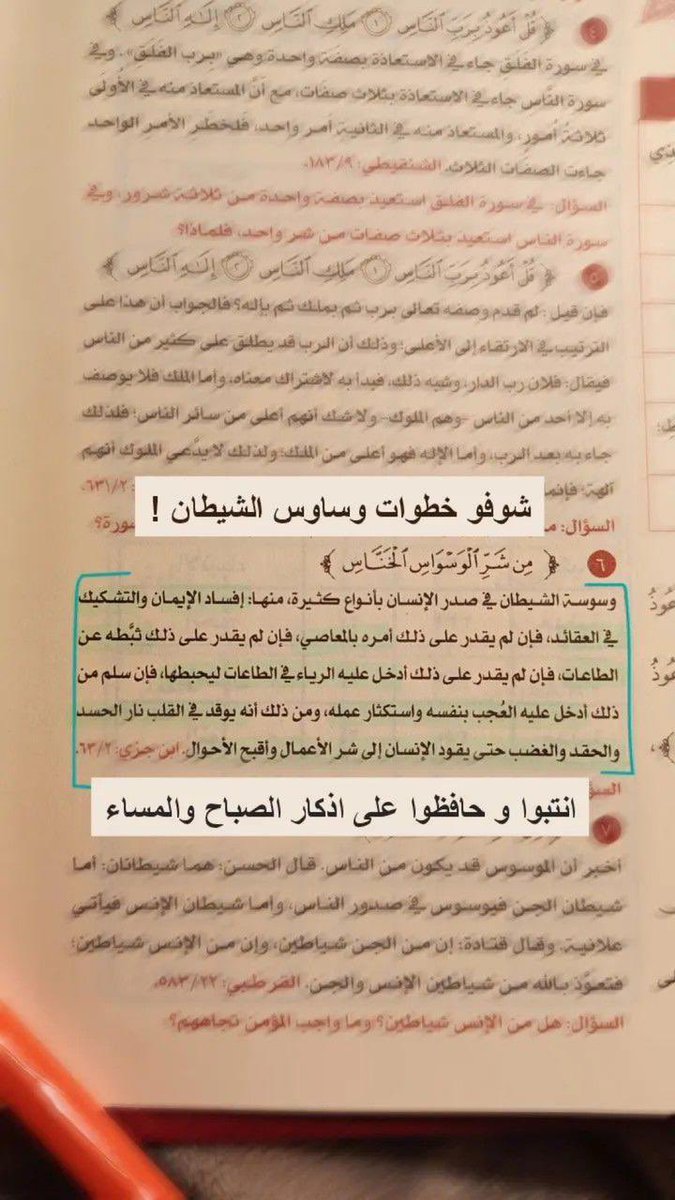 ﴿ قُلْ أَعُوذُ بِرَبِّ ٱلنَّاسِ ١ مَلِكِ ٱلنَّاسِ ٢ إِلَٰهِ ٱلنَّاسِ ﴾ ٤
في سورة الفلق جاء في الاستعاذة بصفة واحدة وهي «برب الفلق». وفي
سورة النَّاس جاء في الاستعاذة بثلاث صفات، مع أنَّ المستعاذ منه في الأُولَى
ثلاثةُ أُمورٍ، والمستعاذ منه في الثانية أمر واحد، فلخطرِ الأمرِ الواحد
جاءت الصفات الثلاث. الشنقيطي: ١٨٣/٩.
السؤال: في سورة الفلق استعيذ بصفة واحدة من ثلاثة شرور، وفي
سورة الناس استعيذ بثلاث صفات من شر واحد، فلماذا؟
﴿ قُلْ أَعُوذُ بِرَبِّ ٱلنَّاسِ ١ مَلِكِ ٱلنَّاسِ ٢ إِلَٰهِ ٱلنَّاسِ ﴾ ٥
فإن قيل: لم قدم وصفه تعالى برب ثم بملك ثم بإله؟ فالجواب أن هذا على
الترتيب في الارتقاء إلى الأعلى؛ وذلك أن الرب قد يطلق على كثير من الناس
فيقال: فلان رب الدار، وشبه ذلك، فبدأ به لاشتراك معناه، وأما الملك فلا يوصف
به إلا أحد من الناس -وهم الملوك- ولا شك أنهم أعلى من سائر الناس؛ فلذلك
جاء به بعد الرب، وأما الإله فهو أعلى من الملك؛ ولذلك لا يدَّعي الملوك أنهم
آلهة؛ فإنما ٦٣١/٢.
شوفو خطوات وساوس الشيطان !
السؤال: سورة؟
﴿ مِن شَرِّ ٱلْوَسْوَاسِ ٱلْخَنَّاسِ ﴾ ٦
وسوسة الشيطان في صدر الإنسان بأنواع كثيرة، منها: إفساد الإيمان والتشكيك
في العقائد، فإن لم يقدر على ذلك أمره بالمعاصي، فإن لم يقدر على ذلك ثبَّطه عن
الطاعات، فإن لم يقدر على ذلك أدخل عليه الرياء في الطاعات ليحبطها، فإن سلم من
ذلك أدخل عليه العُجب بنفسه واستكثار عمله، ومن ذلك أنه يوقد في القلب نار الحسد
والحقد والغضب حتى يقود الإنسان إلى شر الأعمال وأقبح الأحوال. ابن جزي: ٦٣/٢.
انتبوا و حافظوا على اذكار الصباح والمساء
٧
أخبر أن الموسوس قد يكون من الناس. قال الحسن: هما شيطانان: أما
شيطان الجن فيوسوس في صدور الناس، وأما شيطان الإنس فيأتي
علانية. وقال قتادة: إن من الجن شياطين، وإن من الإنس شياطين؛
فتعوَّذ بالله من شياطين الإنس والجن. القرطبي: ٥٨٣/٢٢.
السؤال: هل من الإنس شياطين؟ وما واجب المؤمن تجاههم؟